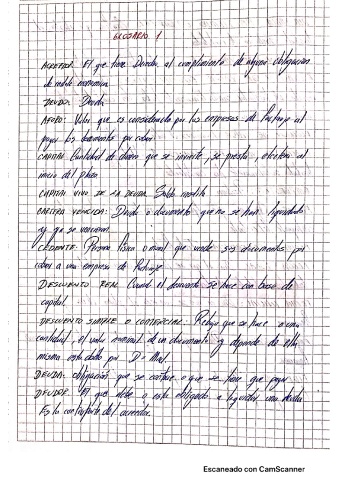 GLOSARIO 1
ACREEDOR: El que tiene Derecho al cumplimiento de alguna obligación
de indole economica
Deuda
AFORO: Valor que es considerado por las empresas de Factoraje al
pagar los documentos por cobrar
CAPITAL Cantidad de dinero que se invierte, se presta, al
inicio del plazo
CAPITAL VIVO DE LA DEUDA Saldo insoluto
CARTERA VENCIDA: Deuda o documento que no se han liquidado
y ya se vencieron
CEDENTE: Persona física o moral que vende sus documentos por
cobrar a una empresa de Factoraje
DESCUENTO REAL Cuando el descuento se hace con base al
capital
DESCUENTO SIMPLE O COMERCIAL: Rebaja que se hace a una
cantidad, el valor nominal de un documento y depende de ella
misma esta dado por D = Mnd
DEUDA: obligación que se contrae o que se tiene que pagar
DEUDOR El que debe o esta obligado a liquidar una deuda
Es la contraparte del acreedor.
Escaneado con CamScanner